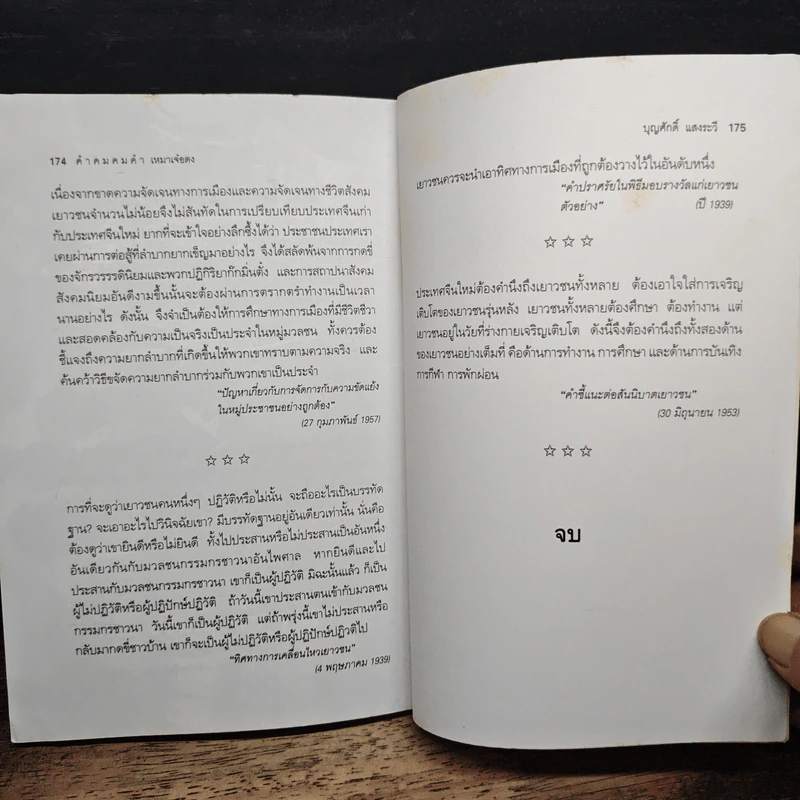 174 คำคมคมคำ เหมาเจ๋อตง
เนื่องจากขาดความจัดเจนทางการเมืองและความจัดเจนทางชีวิตสังคม
เยาวชนจำนวนไม่น้อยจึงไม่สันทัดในการเปรียบเทียบประเทศจีนเก่า
กับประเทศจีนใหม่ ยากที่จะเข้าใจอย่างลึกซึ้งได้ว่า ประชาชนประเทศเรา
เคยผ่านการต่อสู้ที่ลำบากยากเข็ญมาอย่างไร จึงได้สลัดพ้นจากการกดขี่
ของจักรวรรรดินิยมและพวกปฏิกิริยาก๊กมินตั๋ง และการสถาปนาสังคม
สังคมนิยมอันดีงามขึ้นนั้นจะต้องผ่านการตรากตรำทำงานเป็นเวลา
นานอย่างไร ดังนั้น จึงจำเป็นต้องให้การศึกษาทางการเมืองที่มีชีวิตชีวา
และสอดคล้องกับความเป็นจริงเป็นประจำในหมู่มวลชน ทั้งควรต้อง
ชี้แจงถึงความยากลำบากที่เกิดขึ้นให้พวกเขาทราบตามความจริง และ
ค้นคว้าวิธีขจัดความยากลำบากร่วมกับพวกเขาเป็นประจำ
"ปัญหาเกี่ยวกับการจัดการกับความขัดแย้ง
ในหมู่ประชาชนอย่างถูกต้อง"
(27 กุมภาพันธ์ 1957)
☆☆☆
การที่จะดูว่าเยาวชนคนหนึ่งๆ ปฏิวัติหรือไม่นั้น จะถืออะไรเป็นบรรทัด
ฐาน? จะเอาอะไรไปวินิจฉัยเขา? มีบรรทัดฐานอยู่อันเดียวเท่านั้น นั่นคือ
ต้องดูว่าเขายินดีหรือไม่ยินดี ทั้งไปประสานหรือไม่ประสานเป็นอันหนึ่ง
อันเดียวกันกับมวลชนกรรมกรชาวนาอันไพศาล หากยินดีและไป
ประสานกับมวลชนกรรมกรชาวนา เขาก็เป็นผู้ปฏิวัติ มิฉะนั้นแล้ว ก็เป็น
ผู้ไม่ปฏิวัติหรือผู้ปฏิปักษ์ปฏิวัติ ถ้าวันนี้เขาประสานตนเข้ากับมวลชน
กรรมกรชาวนา วันนี้เขาก็เป็นผู้ปฏิวัติ แต่ถ้าพรุ่งนี้เขาไม่ประสานหรือ
กลับมากดขี่ชาวบ้าน เขาก็จะเป็นผู้ไม่ปฏิวัติหรือผู้ปฏิปักษ์ปฏิวติไป
"ทิศทางการเคลื่อนไหวเยาวชน"
(4 พฤษภาคม 1939)
บุญศักดิ์ แสงระวี 175
เยาวชนควรจะนำเอาทิศทางการเมืองที่ถูกต้องวางไว้ในอันดับหนึ่ง
"คำปราศรัยในพิธีมอบรางวัลแก่เยาวชน
ตัวอย่าง" (ปี 1939)
☆☆☆
ประเทศจีนใหม่ต้องคำนึงถึงเยาวชนทั้งหลาย ต้องเอาใจใส่การเจริญ
เติบโตของเยาวชนรุ่นหลัง เยาวชนทั้งหลายต้องศึกษา ต้องทำงาน แต่
เยาวชนอยู่ในวัยที่ร่างกายเจริญเติบโต ดังนี้จึงต้องคำนึงถึงทั้งสองด้าน
ของเยาวชนอย่างเต็มที่ คือด้านการทำงาน การศึกษา และด้านการบันเทิง
การกีฬา การพักผ่อน
"คำชี้แนะต่อสันนิบาตเยาวชน"
(30 มิถุนายน 1953)
☆☆☆
จบ